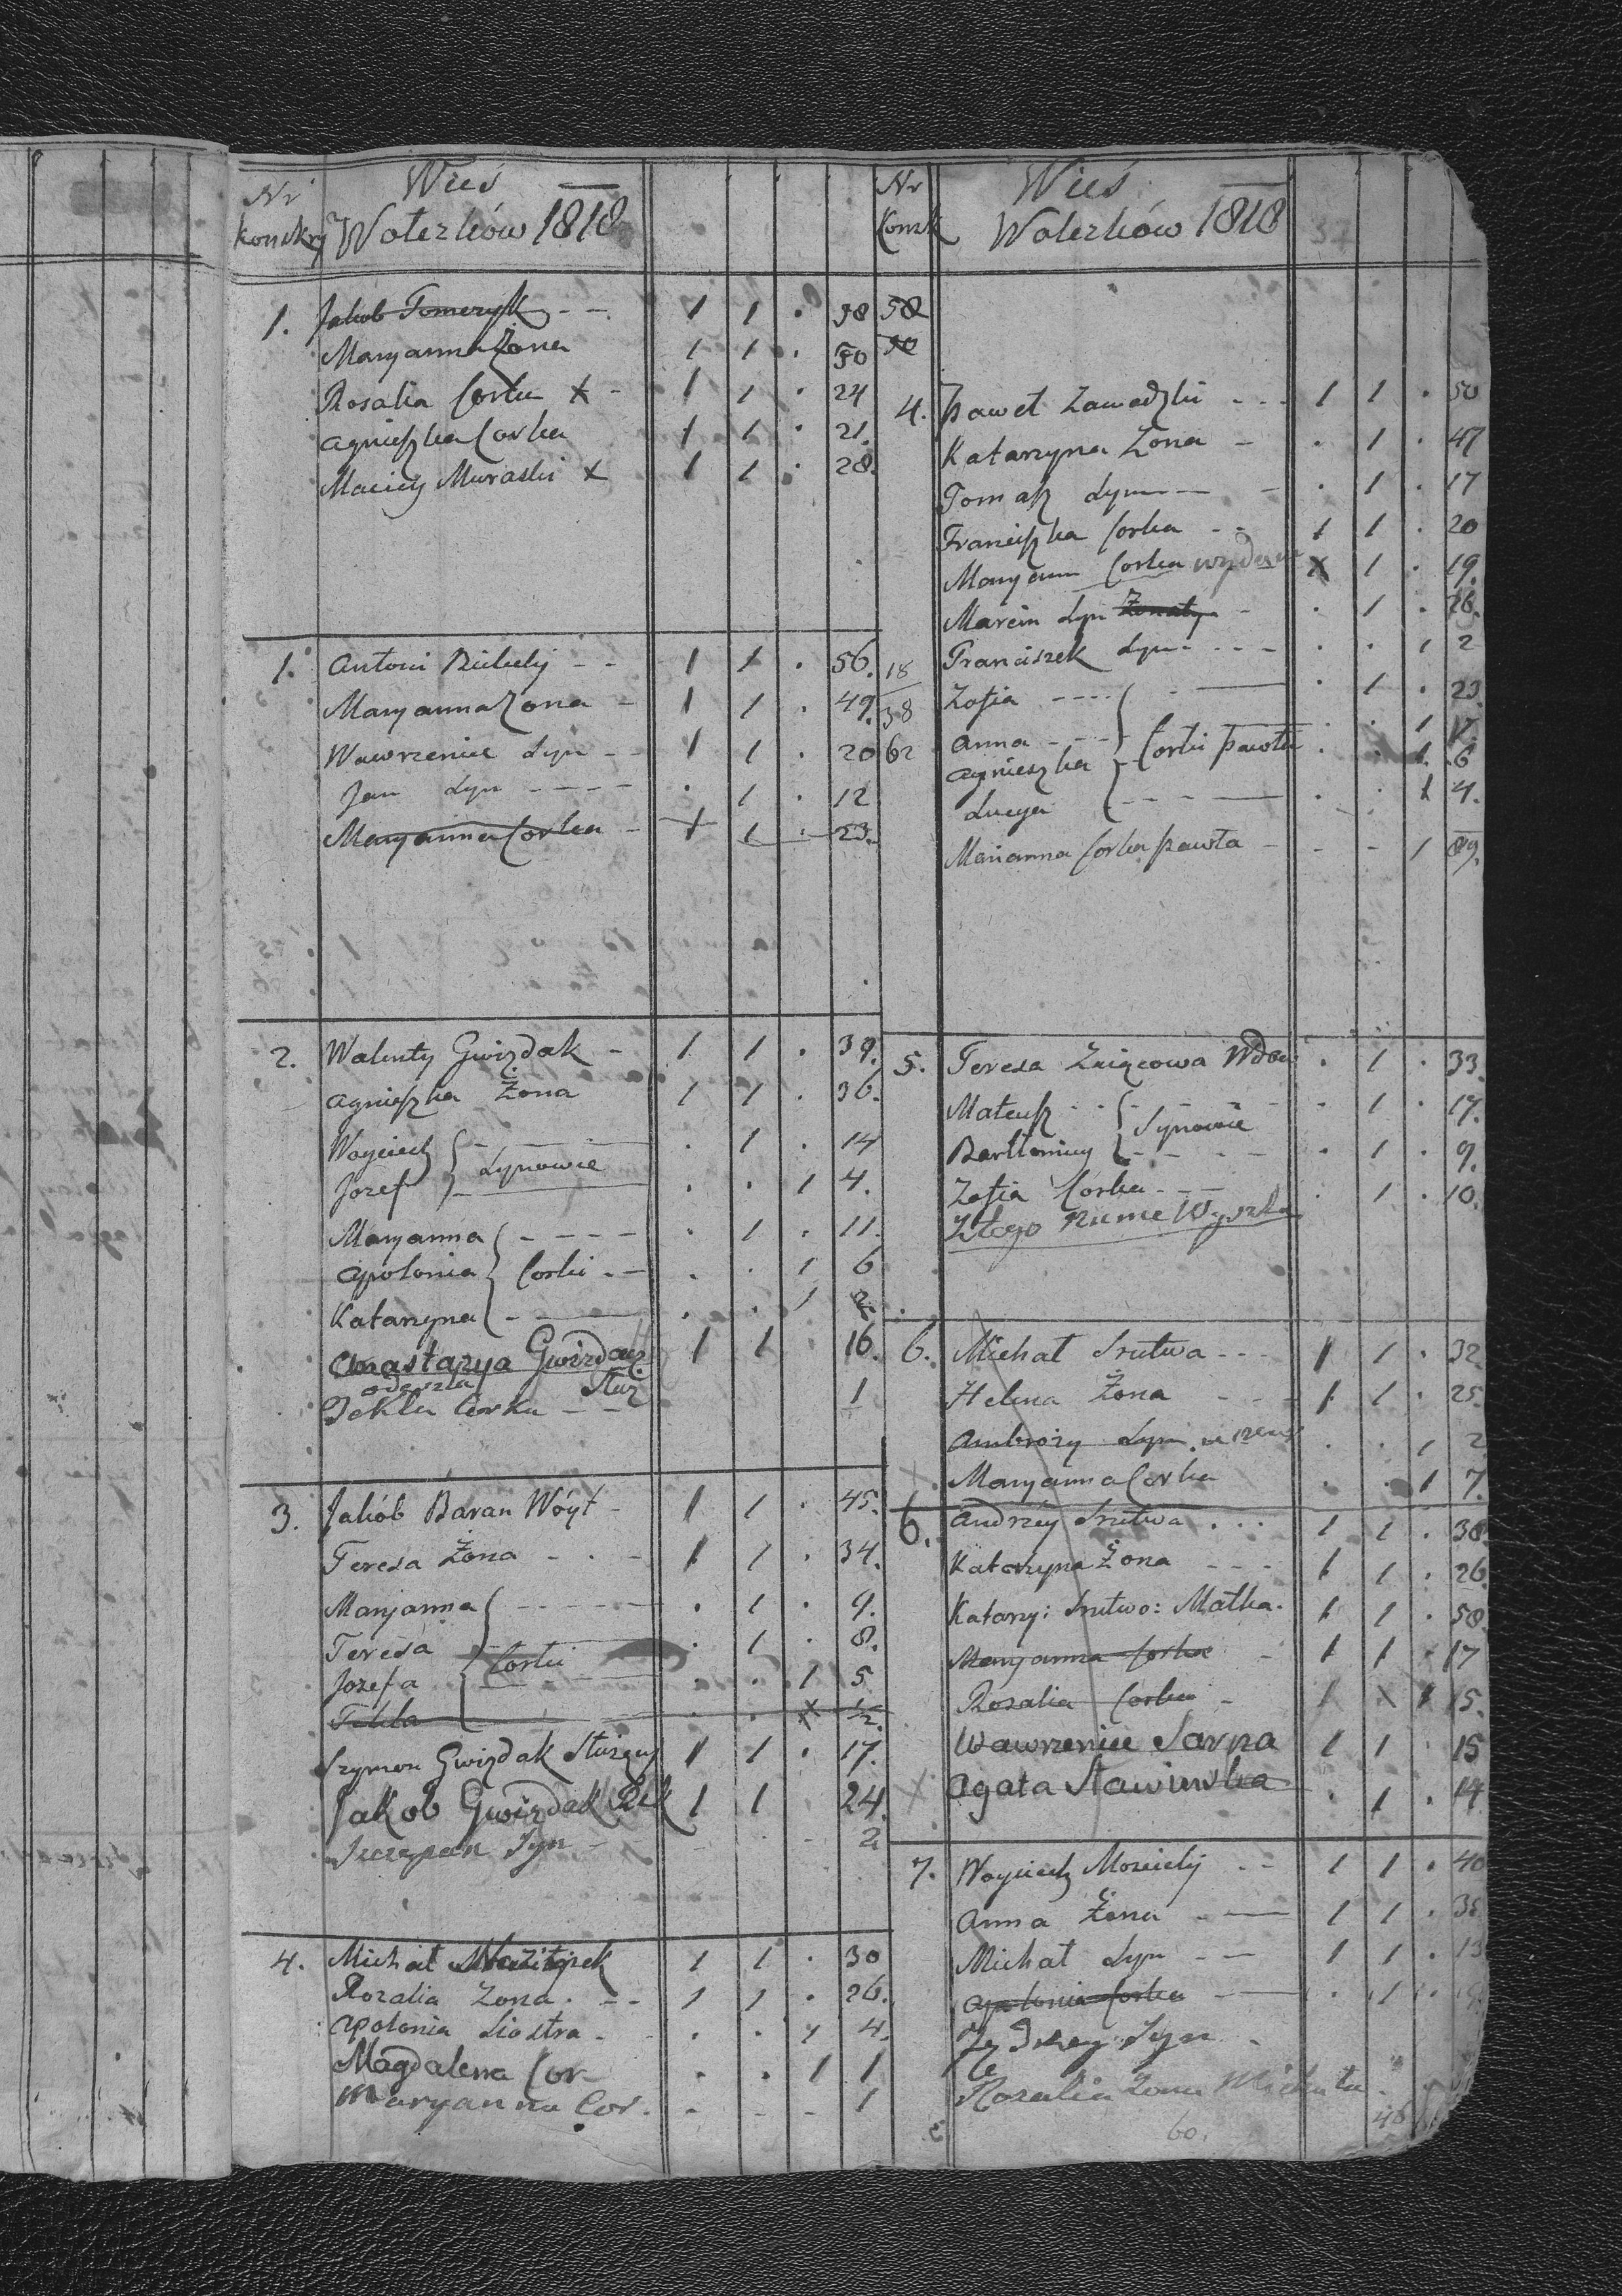 Nr konskry Wieś Woterków 1818
1. Jakob Tomczyk 1 1 . 58 58
Maryanna Zona 1 1 . 50 50
Rosalia Corka x 1 1 . 24
Agnieszka Corka 1 1 . 21.
Maciey Muraski x 1 1 . 28.
1. Antoni 1 1 . 56. 18
Maryanna Zona 1 1 . 49. 38
Wawrzeniec Syn 1 1 . 20 62
Jan Syn . 1 . 12
Maryanna Corka 1 1 . 23.
2. Walenty Gwizdak 1 1 . 39.
Agnieszka Żona 1 1 . 36.
Woyciech . 1 . 14
Synowie
Jozef . . 1 4.
Maryanna . 1 . 11.
Apolonia Corki . . 1 6
Katarzyna . . 1 2.
Anastazya 1 1 16.
odeszła Służ
Tekla Corka 1
3. Jakób Baran Wóyt 1 1 . 45.
Teresa Żona 1 1 . 34.
Maryanna . 1 . 9.
Teresa . 1 . 8.
Corki
Jozefa . . 1 5
Tekla . . x ½.
Szymon Gwizdak Służący 1 1 . 17.
Jakob Gwizdak 1 1 24.
Szczepan Syn 2
4. Michał 1 1 . 30
Rozalia Zona 1 1 . 26.
Apolonia Siostra . . 1 4.
Magdalena Cor . . 1 1
Maryanna Cor. 1
Nr Konsk Wieś Woterków 1818
4. Paweł Zawadzki 1 1 . 50
Katarzyna Zona . 1 . 47
Tomasz Syn . 1 . 17
Franciszka Corka 1 1 . 20
Maryann Corka wydana x 1 . 19.
Marcin Syn Żonaty . 1 . 26.
Franciszek Syn . . 1 2
Zofia . 1 . 23.
Anna . . 1
Agnieszka Corki Pawła . . 1. 6
Lucya . . 1 4.
Marianna Corka Pawła 1
5. Teresa Wdow . 1 . 33.
Mateusz . 1 . 17.
Synowie
Bartłomiey . 1 . 9.
Zofia Corka . 1 . 10.
Z tego
6. Michał Srutwa 1 1 . 32
Helena Żona 1 1 . 25.
Ambrozy Syn . . 1 2
Maryanna Corka . . 1 7.
6. Andrzey Srutwa 1 1 . 38
Katarzyna Żona 1 1 . 26
Katarzy: Srutwo: Matka. 1 1 . 58
Maryanna Corka 1 1 17
Rosalia Corka 1 x 1 15.
Wawrzeniec Sarna 1 1 15
Agata . 1 . 14
7. Woyciech 1 1 . 40
Anna Żona 1 1 .
Michał Syn 1 1 . 13
Apolonia Corka . 1 .
Syn
Rozalia Zona Michała
60. 46